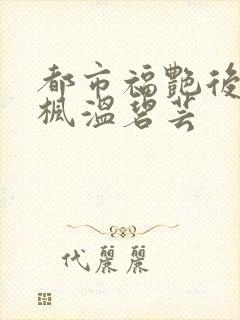 都市福艷後
楓溫碧芸
代麗麗